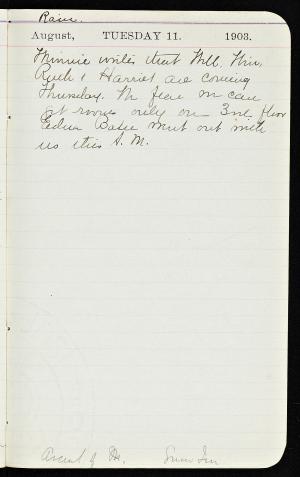 Rain.
August, TUESDAY 11. 1903.
Minnie writes that Will, Win,
Ruth & Harriet are coming
Thursday. We fear we can
get rooms only on 3rd floor
Edna Base went out with
us this A.M.
Ascent of Mt.